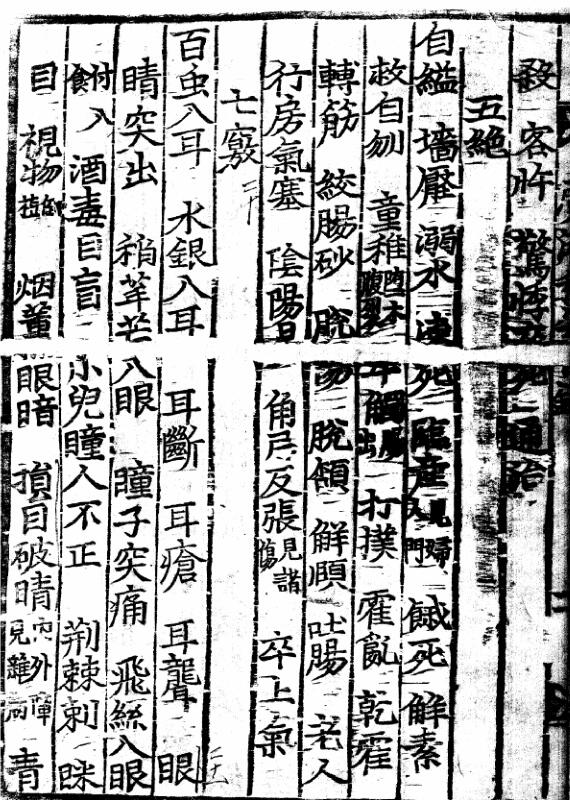 殺 客忤 驚悸 死 通治
五絶
自縊 墻壓 溺水 凍死 臨産 又見婦門 餓死 解素
救自刎 童稚 腹裂 觸 出 打撲 霍亂 乾霍
轉筋 絞腸砂 脫 脫頷 解頤 吐腸 老人
行房氣塞 陰陽 角弓反張 見諸傷 卒上氣
七竅
百虫入耳 水銀入耳 耳斷 耳瘡 耳聾 眼
睛突出 稻芒入眼 瞳子突痛 飛絲入眼
付食入 酒毒目盲 小兒瞳人不正 荆棘刺 眯
目 視物 烟薰 眼暗 損目破睛 內外障見雜病 青